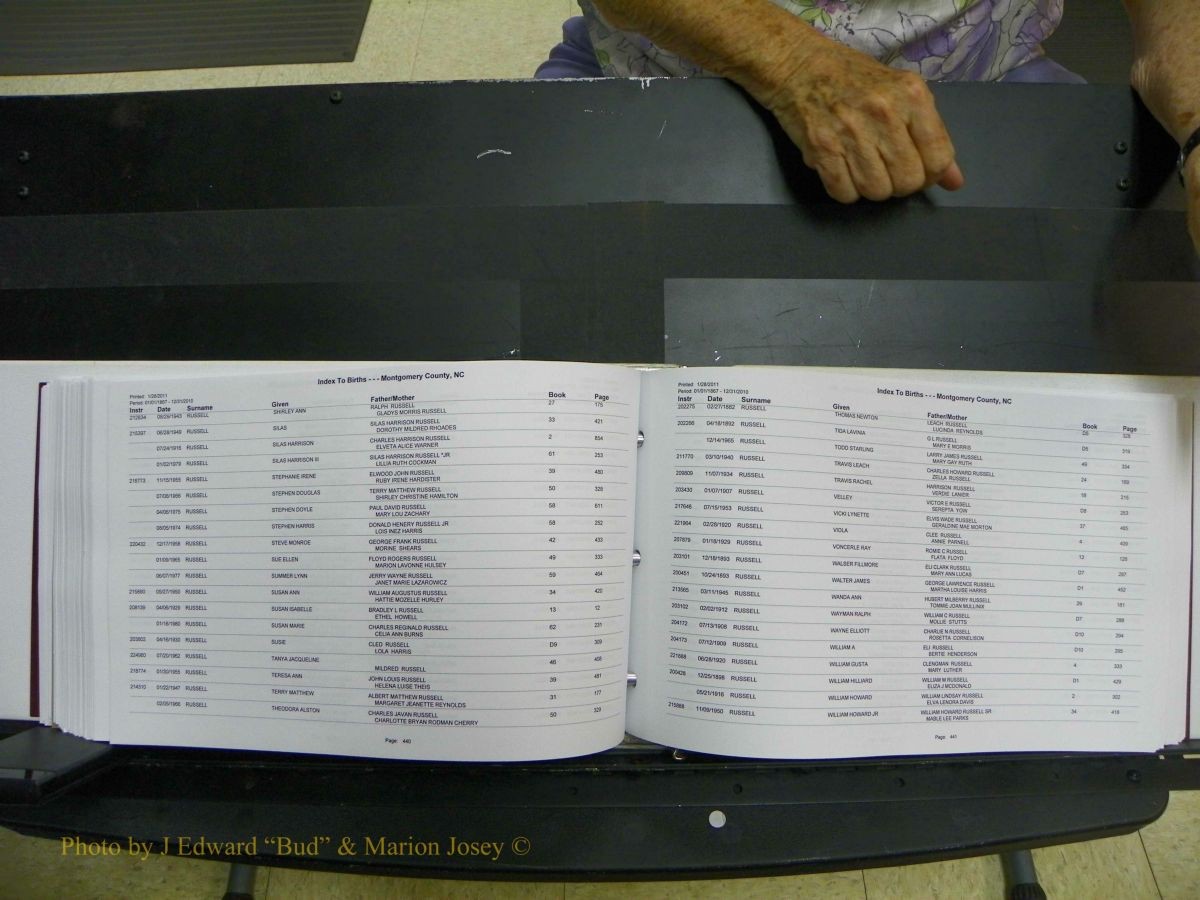 Index To Births - - - Montgomery County, NC
Printed: 1/28/2011
Period: 01/01/1867 - 12/31/2010
Instr Date Surname Given Father/Mother Book Page
212634 RUSSELL SHIRLEY ANN RALPH RUSSELL 27 175
GLADYS MORRIS RUSSELL
215397 06/28/1949 RUSSELL SILAS SILAS HARRISON RUSSELL 33 421
DOROTHY MILDRED RHOADES
07/24/1916 RUSSELL SILAS HARRISON CHARLES HARRISON RUSSELL 2 854
ELVETA ALICE WARNER
01/02/1979 RUSSELL SILAS HARRISON III SILAS HARRISON RUSSELL *JR 61 253
LILLIA RUTH COCKMAN
218773 11/15/1955 RUSSELL STEPHANIE IRENE ELWOOD JOHN RUSSELL 39 480
RUBY IRENE HARDISTER
07/08/1966 RUSSELL STEPHEN DOUGLAS TERRY MATTHEW RUSSELL 50 328
SHIRLEY CHRISTINE HAMILTON
04/06/1975 RUSSELL STEPHEN DOYLE PAUL DAVID RUSSELL 58 611
MARY LOU ZACHARY
08/05/1974 RUSSELL STEPHEN HARRIS DONALD HENERY RUSSELL JR 58 252
LOIS INEZ HARRIS
220432 12/17/1958 RUSSELL STEVE MONROE GEORGE FRANK RUSSELL 42 433
MORINE SHEARS
01/09/1965 RUSSELL SUE ELLEN FLOYD ROGERS RUSSELL 49 333
MARION LAVONNE HULSEY
06/07/1977 RUSSELL SUMMER LYNN JERRY WAYNE RUSSELL 59 464
JANET MARIE LAZAROWICZ
215890 05/27/1950 RUSSELL SUSAN ANN WILLIAM AUGUSTUS RUSSELL 34 420
HATTIE MOZELLE HURLEY
208139 04/06/1929 RUSSELL SUSAN ISABELLE BRADLEY L RUSSELL 13 12
ETHEL HOWELL
01/16/1980 RUSSELL SUSAN MARIE CHARLES REGINALD RUSSELL 62 231
CELIA ANN BURNS
203802 04/16/1930 RUSSELL SUSIE CLED RUSSELL D9 309
LOLA HARRIS
224080 07/20/1962 RUSSELL TANYA JACQUELINE 46 468
MILDRED RUSSELL
218774 01/30/1955 RUSSELL TERESA ANN JOHN LOUIS RUSSELL 39 481
HELENA LUISE THEIS
214510 01/22/1947 RUSSELL TERRY MATTHEW ALBERT MATTHEW RUSSELL 31 177
MARGARET JEANETTE REYNOLDS
02/05/1966 RUSSELL THEODORA ALSTON CHARLES JAVAN RUSSELL 50 329
CHARLOTTE BRYAN RODMAN CHERRY
Page: 440
Printed: 1/28/2011
Period: 01/01/1867 - 12/31/2010
Index To Births - - - Montgomery County, NC
Instr Date Surname Given Father/Mother Book Page
202275 02/27/1882 RUSSELL THOMAS NEWTON LEACH RUSSELL D5 328
LUCINDA REYNOLDS
202266 04/18/1892 RUSSELL TIDA LAVINIA G L RUSSELL D5 319
MARY E MORRIS
12/14/1965 RUSSELL TODD STARLING LARRY JAMES RUSSELL 49 334
MARY GAY RUTH
211770 03/10/1940 RUSSELL TRAVIS LEACH CHARLES HOWARD RUSSELL 24 189
ZELLA RUSSELL
209809 11/07/1934 RUSSELL TRAVIS RACHEL HARRISON RUSSELL 18 216
VERDIE LANIER
203430 01/07/1907 RUSSELL VELLEY VICTOR E RUSSELL D8 253
SEREPTA YOW
217646 07/15/1953 RUSSELL VICKI LYNETTE ELVIS WADE RUSSELL 37 465
GERALDINE MAE MORTON
221964 02/28/1920 RUSSELL VIOLA CLEE RUSSELL 4 409
ANNIE PARNELL
207879 01/18/1929 RUSSELL VONCERLE RAY ROMIE C RUSSELL 12 125
FLATA FLOYD
203101 12/18/1893 RUSSELL WALSER FILLMORE ELI CLARK RUSSELL D7 287
MARY ANN LUCAS
200451 10/24/1893 RUSSELL WALTER JAMES GEORGE LAWRENCE RUSSELL D1 452
MARTHA LOUISE HARRIS
213565 03/11/1945 RUSSELL WANDA ANN HUBERT MILBERRY RUSSELL 29 181
TOMMIE JOAN MULLINIX
203102 02/02/1912 RUSSELL WAYMAN RALPH WILLIAM C RUSSELL D7 288
MOLLIE STUTTS
204172 07/13/1908 RUSSELL WAYNE ELLIOTT CHARLIE N RUSSELL D10 294
ROSETTA CORNELISON
204173 07/12/1909 RUSSELL WILLIAM A ELI RUSSELL D10 295
BERTIE HENDERSON
221888 06/28/1920 RUSSELL WILLIAM GUSTA CLENGMAN RUSSELL 4 333
MARY LUTHER
200428 12/25/1898 RUSSELL WILLIAM HILLIARD WILLIAM M RUSSELL D1 429
ELIZA J MCDONALD
05/21/1916 RUSSELL WILLIAM HOWARD WILLIAM LINDSAY RUSSELL 2 302
ELVA LENORA DAVIS
215888 11/09/1950 RUSSELL WILLIAM HOWARD JR WILLIAM HOWARD RUSSELL SR 34 418
MABLE LEE PARKS
Page: 441
Photo by J Edward “Bud” & Marion Josey ©